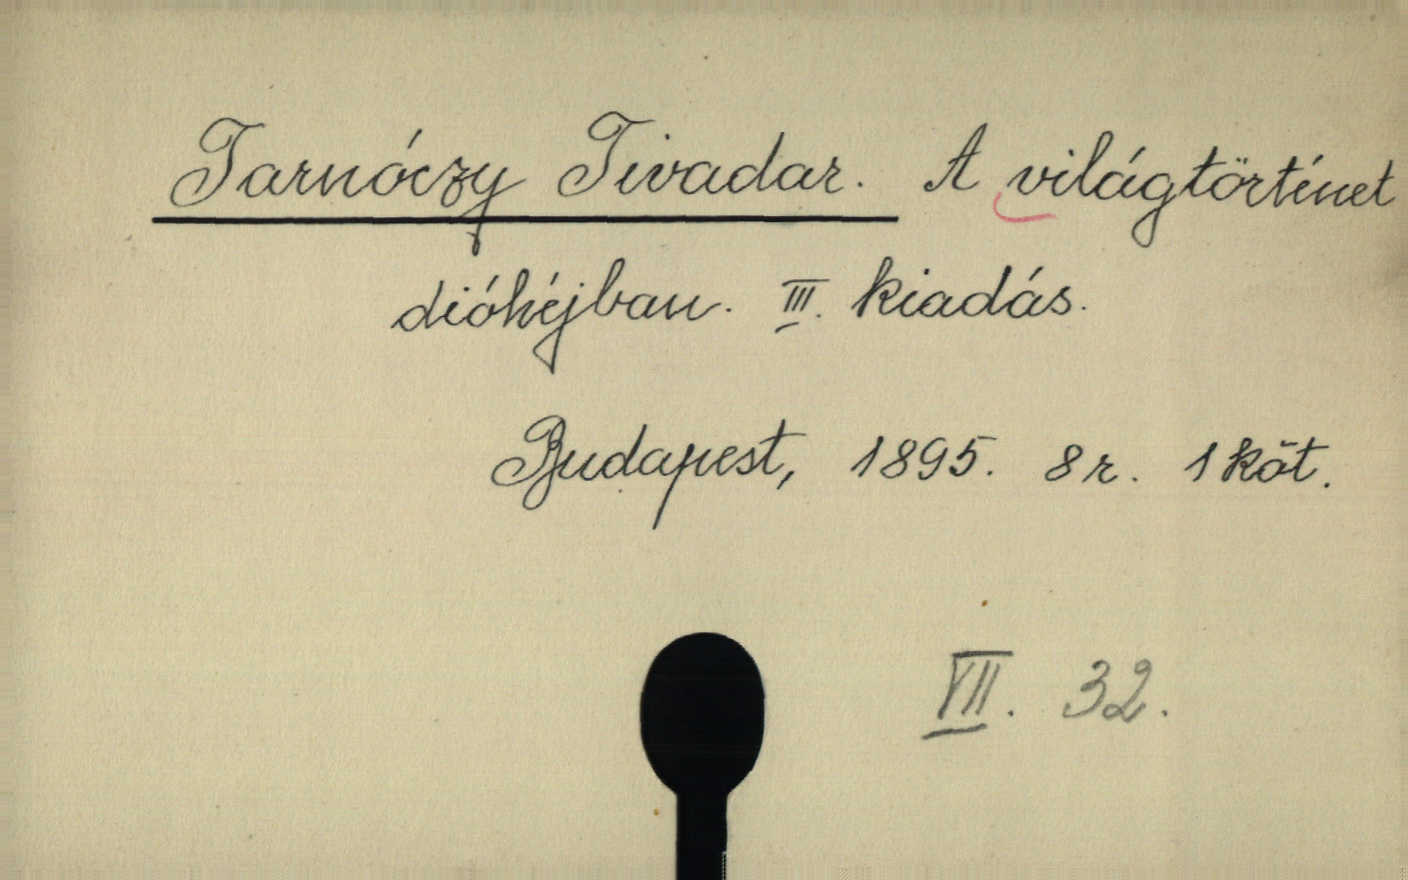 Tarnóczy Tivadar. A világtörténet
dióhéjban. III. kiadás.
Budapest, 1895. 8r. 1 köt.
VII. 32.